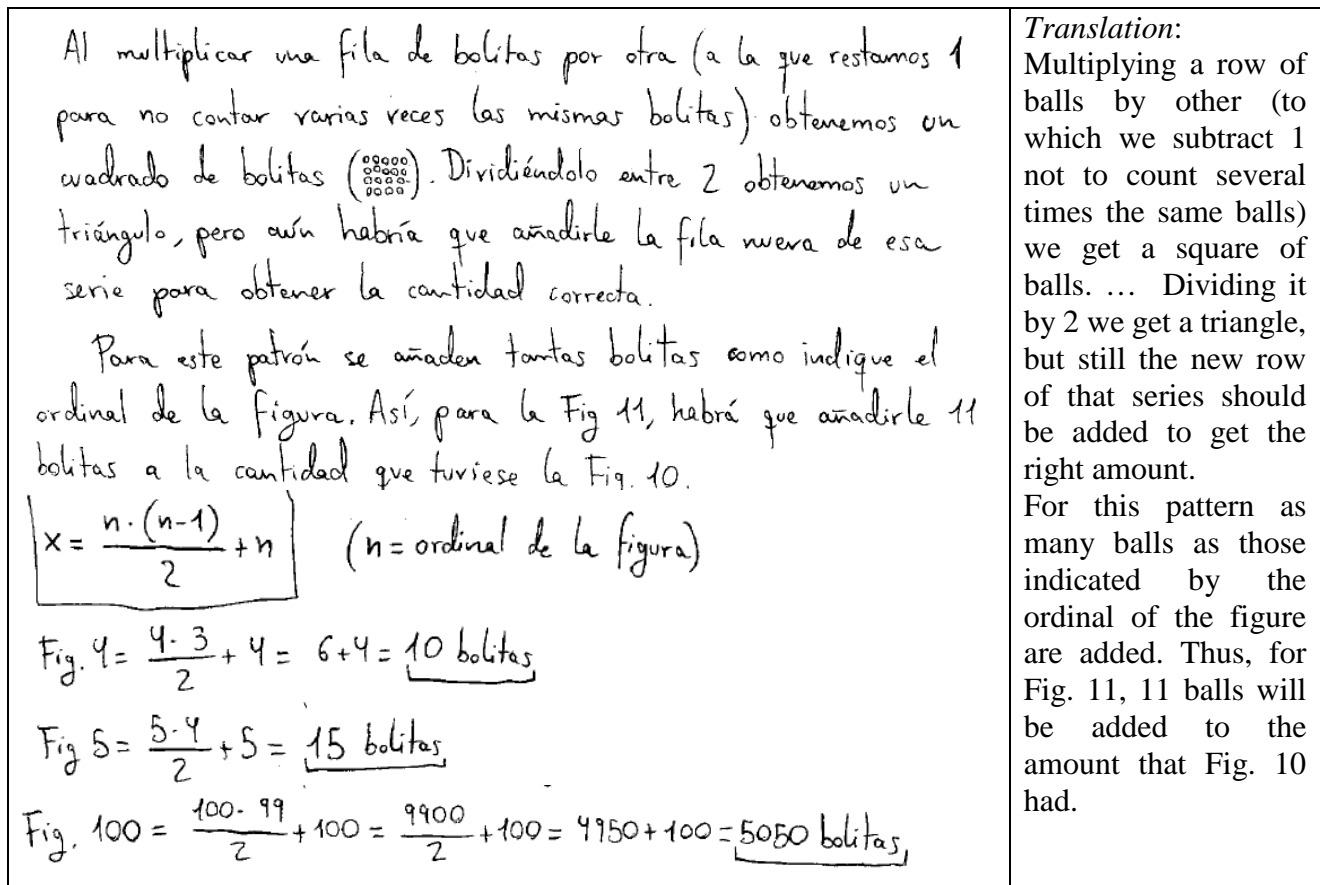 Al multiplicar una fila de bolitas por otra (a la que restamos 1
para no contar varias veces las mismas bolitas) obtenemos un
cuadrado de bolitas ( ). Dividiéndolo entre 2 obtenemos un
triángulo, pero aún habría que añadirle la fila nueva de esa
serie para obtener la cantidad correcta.
Para este patrón se añaden tantas bolitas como indique el
ordinal de la figura. Así, para la Fig 11, habrá que añadirle 11
bolitas a la cantidad que tuviese la Fig. 10.
x = n · (n-1) / 2 + n (n = ordinal de la figura)
Fig. 4 = 4 · 3 / 2 + 4 = 6+4 = 10 bolitas
Fig 5 = 5 · 4 / 2 + 5 = 15 bolitas
Fig. 100 = 100 · 99 / 2 + 100 = 9900 / 2 + 100 = 4950 + 100 = 5050 bolitas
Translation:
Multiplying a row of
balls by other (to
which we subtract 1
not to count several
times the same balls)
we get a square of
balls. … Dividing it
by 2 we get a triangle,
but still the new row
of that series should
be added to get the
right amount.
For this pattern as
many balls as those
indicated by the
ordinal of the figure
are added. Thus, for
Fig. 11, 11 balls will
be added to the
amount that Fig. 10
had.